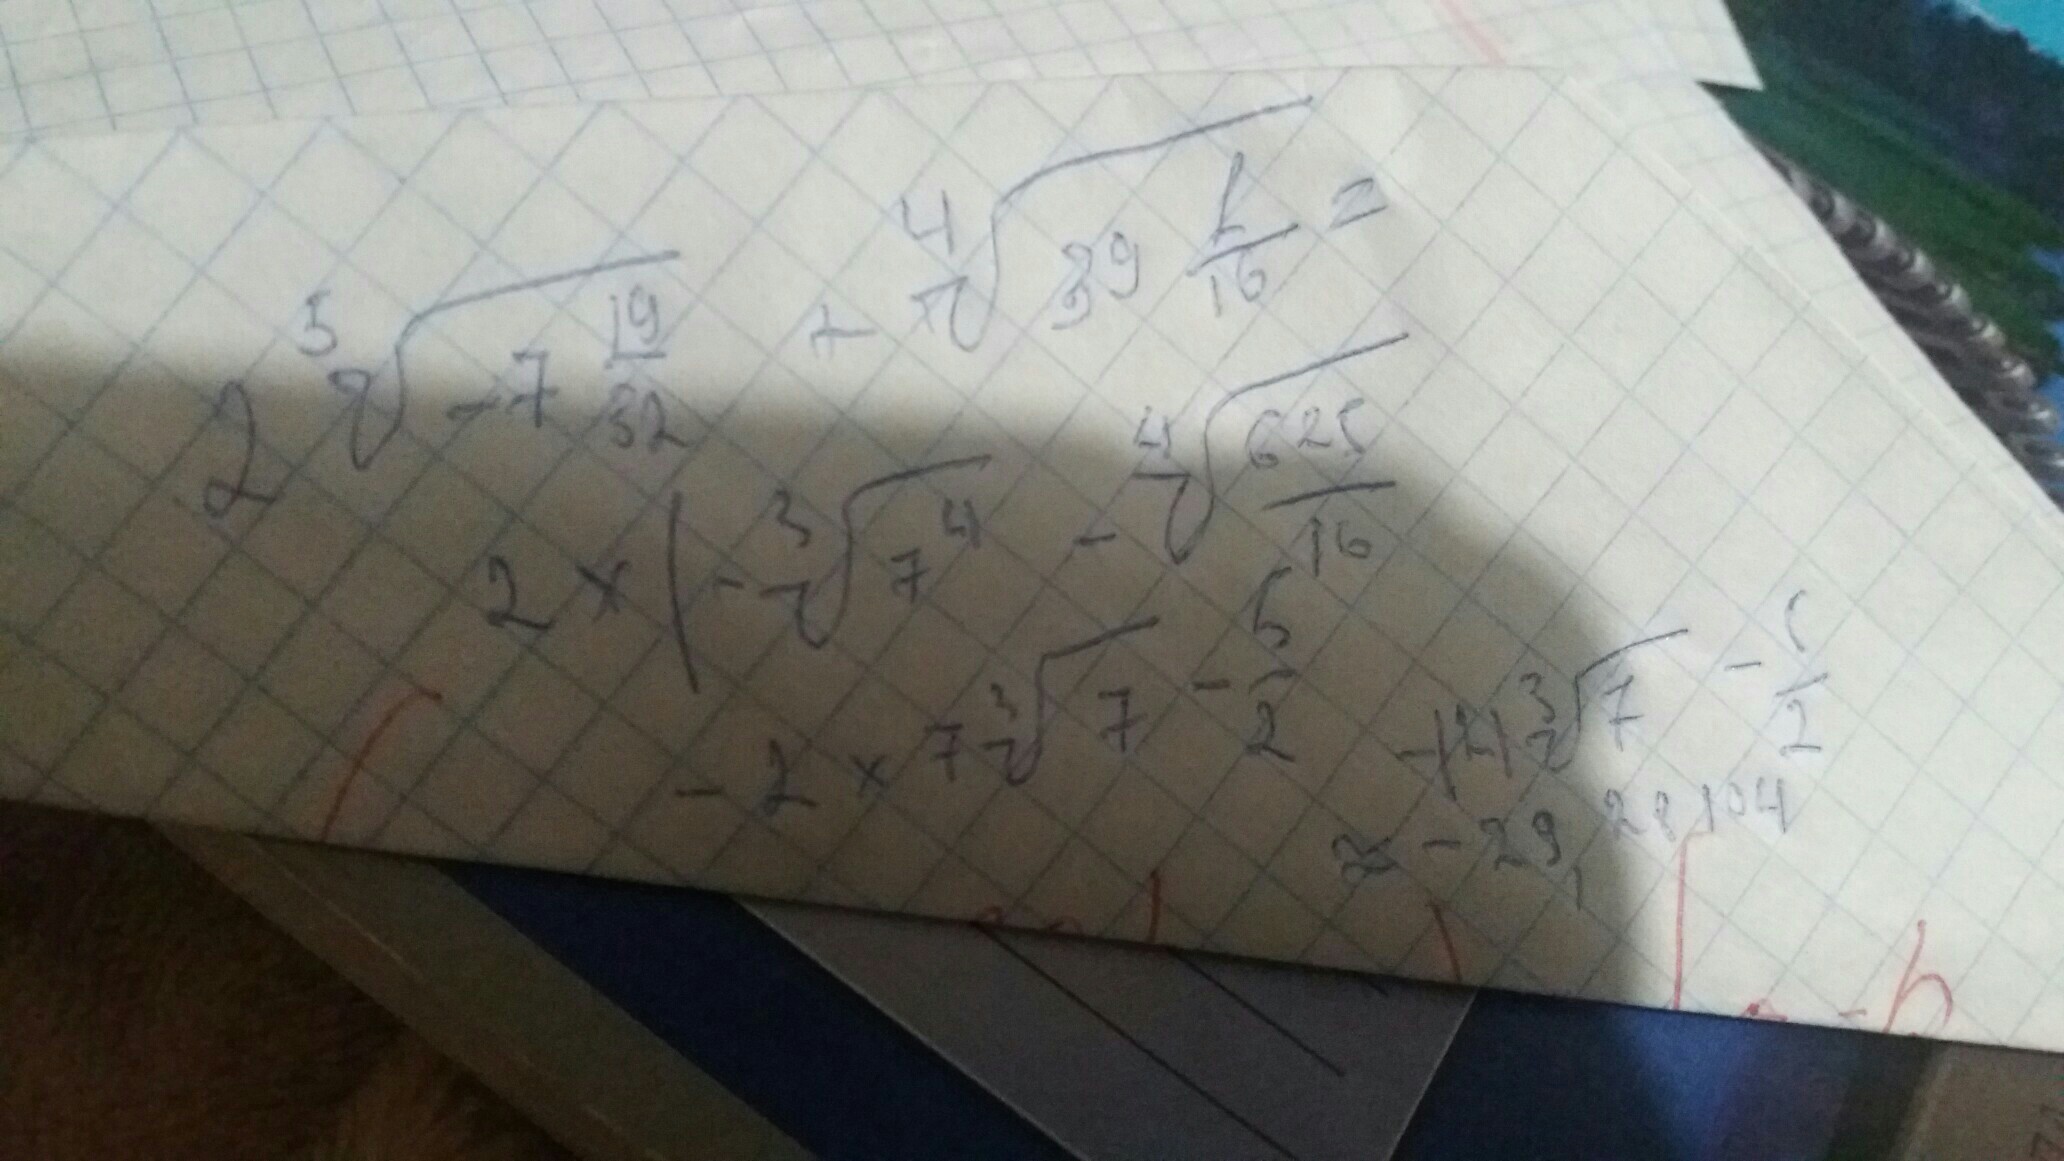 2 ⁵√(-7 19/32) - ⁴√(39 1/16) =
2 × (-³√(7⁴) - ⁴√(625/16)
-2 × 7 ³√7 - 5/2
-14 ³√7 - 5/2
≈ -29,28104